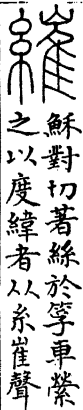 繀
穌對切著絲於筟車縈
之以度緯者从糸崔聲